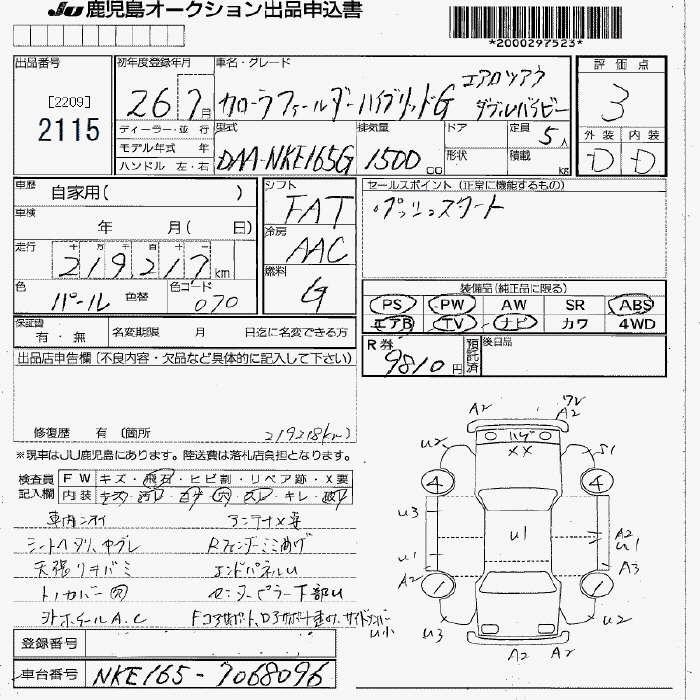 JU 鹿児島オークション出品申込書
*2000297523*
出品番号
[2209]
2115
初年度登録年月
26 7月
車名・グレード
カローラフィールダーハイブリッドG
エアロツアラ
ダブルバイビー
評価点
3
外装 内装
D D
ディーラー・並行
モデル年式 年
ハンドル 左・右
型式
DAA-NKE165G
排気量
1500 cc
ドア
形状
定員 5人
積載 kg
車歴
自家用( )
車検
年 月( 日)
走行
十 万 千 百 十 一
219,217 km
色
パール
色替
色コード
070
シフト
FAT
冷房
AAC
燃料
G
セールスポイント (正常に機能するもの)
・プッシュスタート
装備品 (純正品に限る)
PS PW AW SR ABS
エアB TV ナビ カワ 4WD
保証書
有・無
名変期限 月 日迄に名変できる方
R券
9810円
預託済
後日品
出品店申告欄 (不良内容・欠品など具体的に記入して下さい)
修復歴 有 (箇所
219218km)
※現車はJU鹿児島にあります。陸送費は落札店負担となります。
検査員
記入欄
FW キズ・飛石・ヒビ割・リペア跡・X要
内装
キレ
車内ニオイ
アンテナX要
シートヘタリ、ヤブレ
Rフェンダーミミ曲げ
天張リキバミ
エンドパネルU
トノカバー
センターピラー下部U
外ホイールA.C
登録番号
車台番号
NKE165-7068096
A2
A2
ハゲ
XX
U2
S1
4
4
U3
U1
U1
A2
U1
A2
A3
1
1
U小
U3
U2
A2
A2